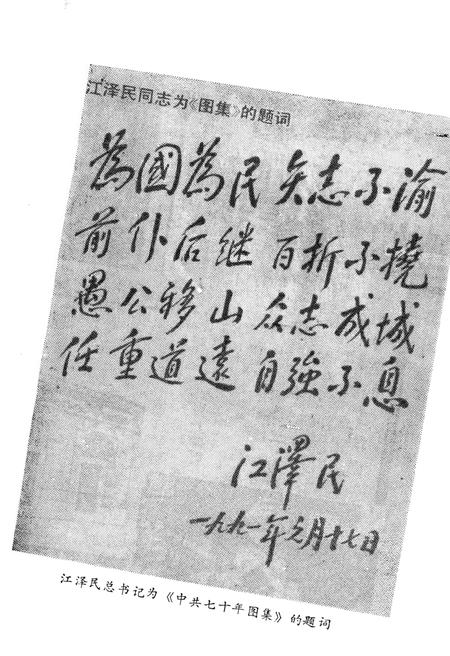 江泽民同志为《图集》的题词
為國為民 矢志不渝
前仆后继 百折不撓
愚公移山 众志成城
任重道遠 自強不息
江澤民
一九九一年元月十七日
江泽民总书记为《中共七十年图集》的题词